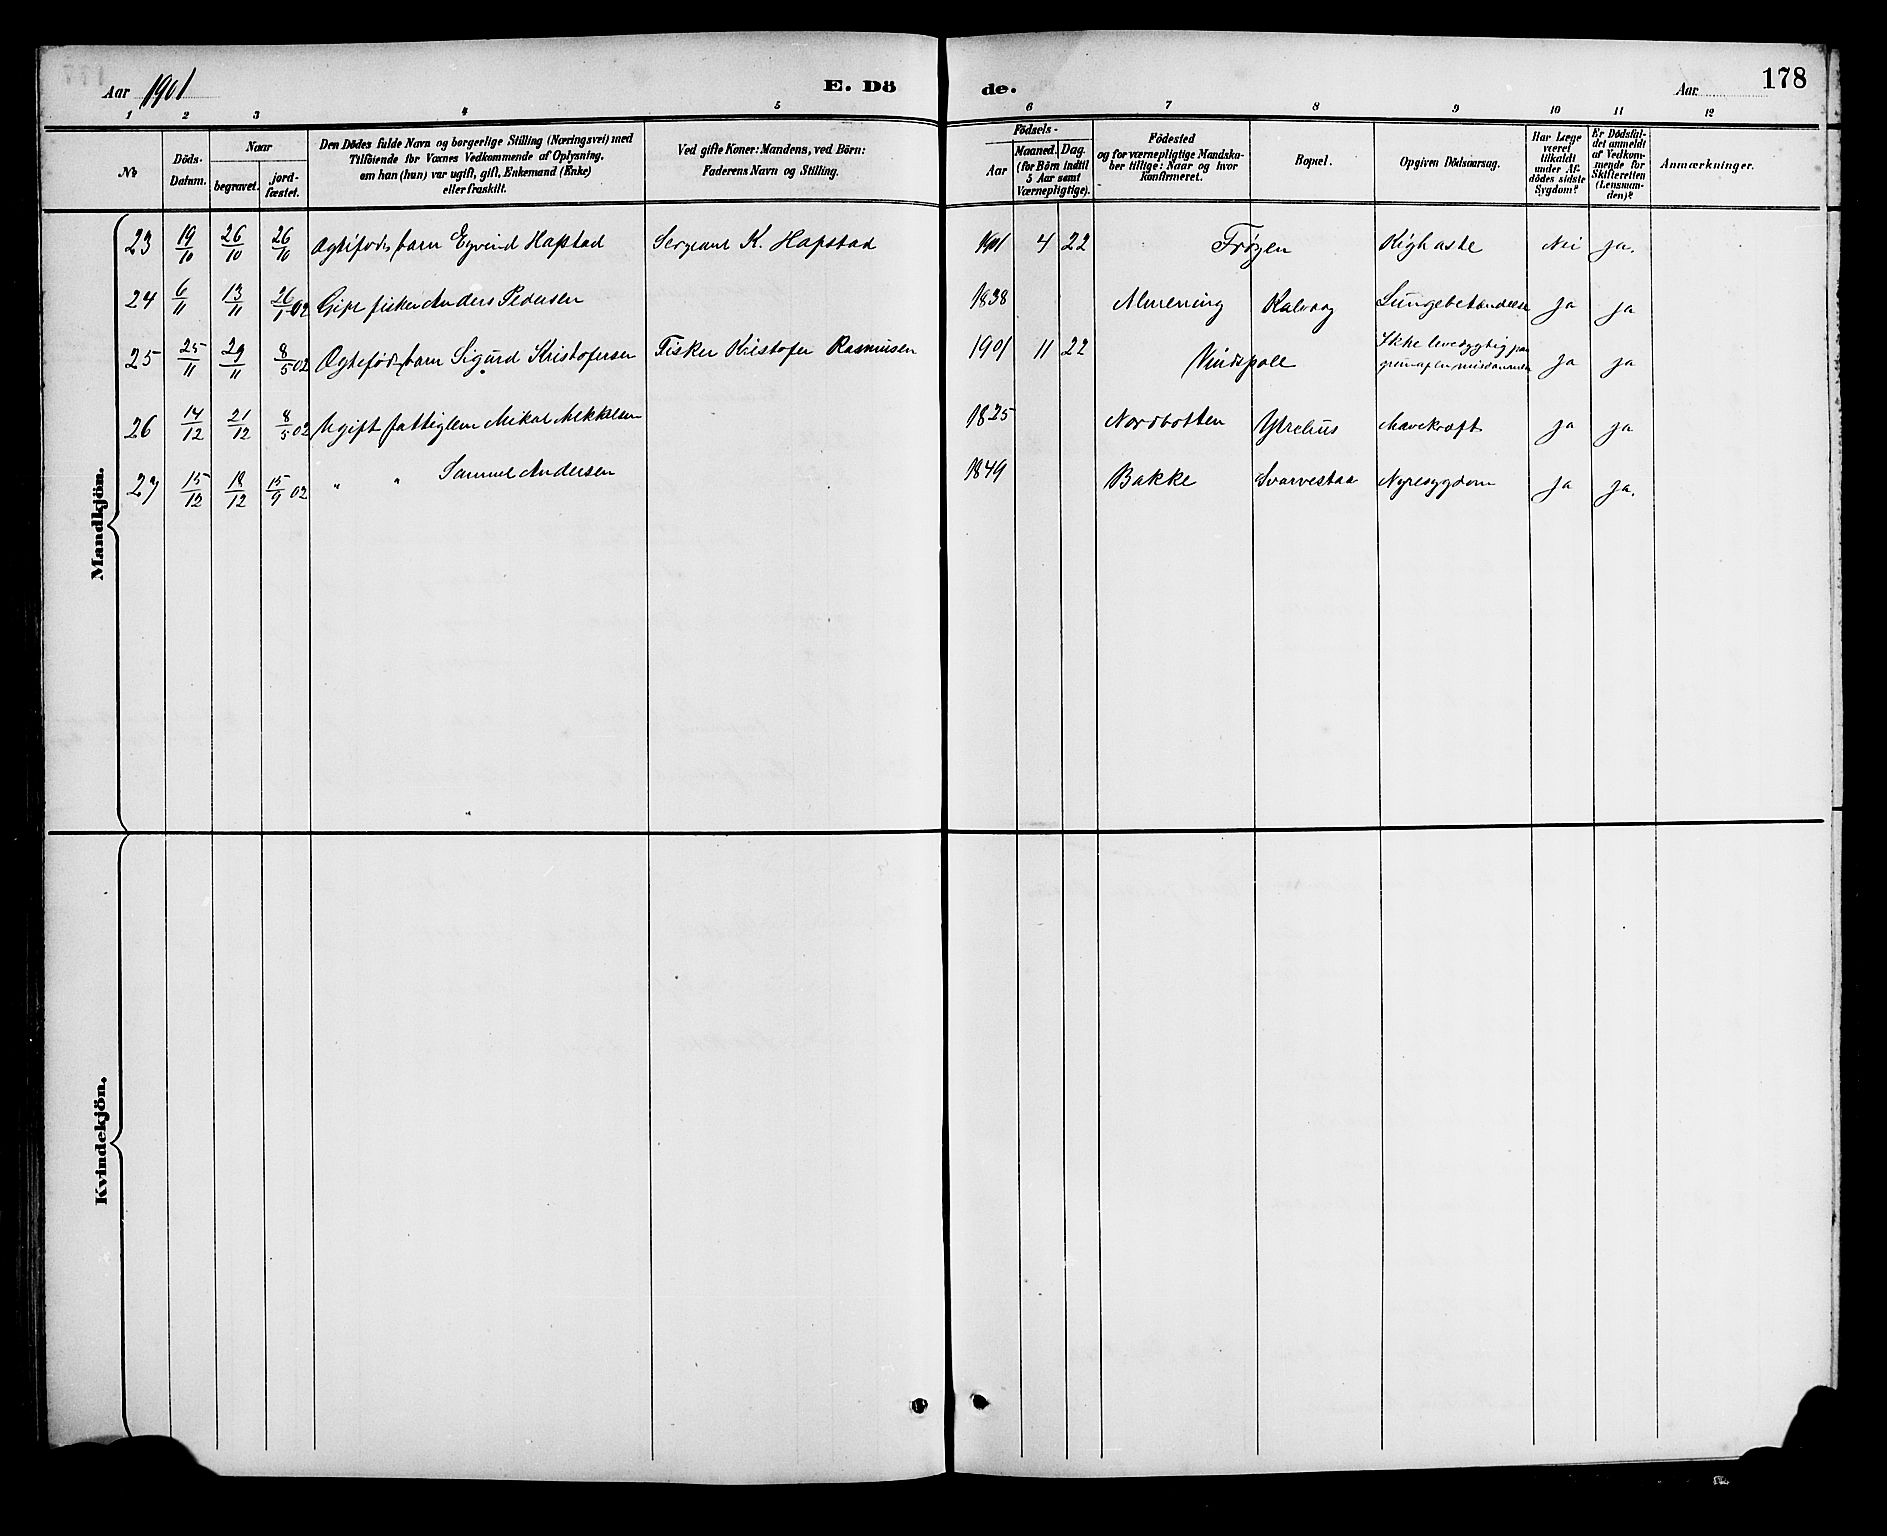 Aar 1901 E. Dö de. Aar 178
1 2 3 4 5 6 7 8 9 10 11 12
No
Döds-Datum.
Naar
begravet.
jord-fæstet.
Den Dödes fulde Navn og borgerlige Stilling (Næringsvei) med
Tilföiende for Voxnes Vedkommende af Oplysning,
om han (hun) var ugift, gift, Enkemand (Enke)
eller fraskilt.
Ved gifte Koner: Mandens, ved Börn:
Faderens Navn og Stilling.
Födsels-
Aar
Maaned. Dag.
(for Börn indtil
5 Aar samt
Værnepligtige).
Födested
og for værnepligtige Mandska-
ber tillige: Naar og hvor
Konfirmeret.
Bopæl.
Opgiven Dödsaarsag.
Har Læge
været
tilkaldt
under Af-
dödes sidste
Sygdom?
Er Dödsfal-
det anmeldt
af Vedkom-
mende for
Skifteretten
(Lensman-
den)?
Anmærkninger.
Mandkjön.
23 19/10 26/10 26/10 Ogtefødt barn Eyvind Hapstad Sergeant K. Hapstad 1901 4 22 Frøyen Kighoste Nei Ja.
24 6/11 13/11 26/1 02 Gift fisker Anders Pedersen 1838 Kalvaag Lungebetændelse Ja Ja
25 25/11 29/11 8/5 02 Ogtefødt barn Sigurd Kristofersen Fisker Kristofer Rasmusen 1901 11 22 Vindspole Ikke levedygtig paa
grun af en Ja Ja
26 14/12 21/12 8/5 02 Ugift fattiglem Mikal Mekkelsen 1825 Nordbotten Ytrehus Mavekræft Ja Ja
27 15/12 18/12 15/9 02 " " Samuel Andersen 1849 Bakke Svarvestaa Nyresygdom Ja Ja.
Kvindekjön.